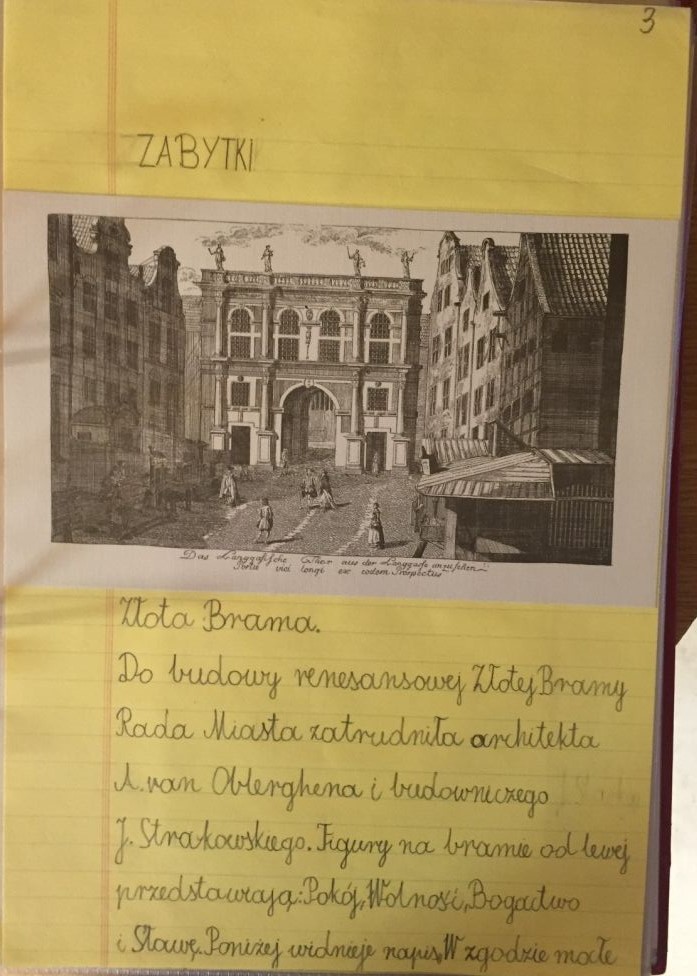 3
ZABYTKI
Das Langgasische Thor aus der Langgass anzusehen
Porta vici longi ex eodem Prospectus
Złota Brama.
Do budowy renesansowej Złotej Bramy
Rada Miasta zatrudniła architekta
A. van Obberghena i budowniczego
J. Strakowskiego. Figury na bramie od lewej
przedstawiają: Pokój, Wolność, Bogactwo
i Sławę. Poniżej widnieje napis „W zgodzie małe